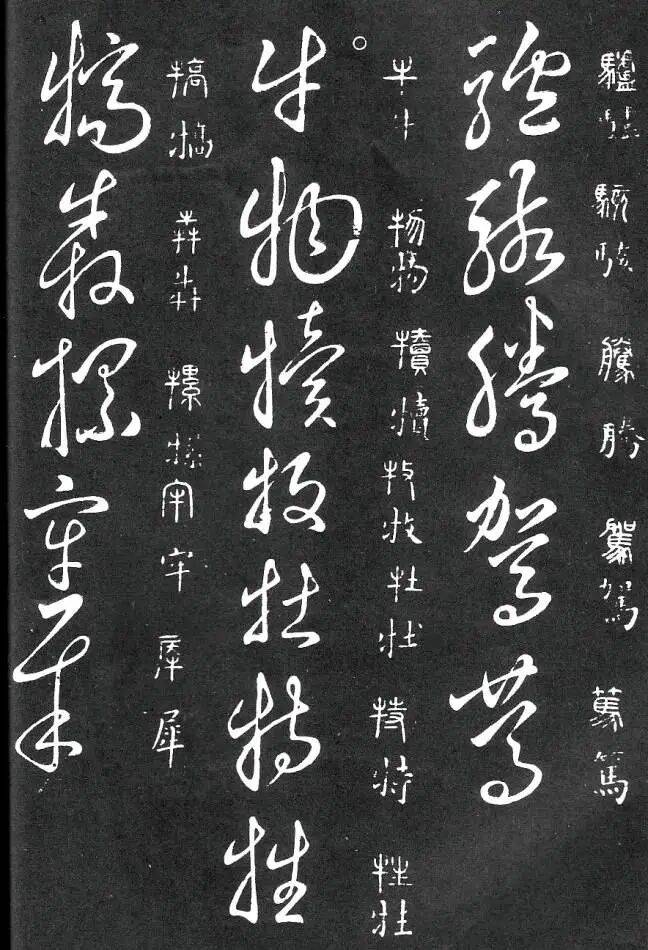 驢驢駭駭騰騰駕駕篤篤
驢駭騰駕篤
牛牛物物犢犢牧牧牡牡特特牲牲
牛物犢牧牡特牲
犒犒犇犇牢牢犀犀
犒犇牢犀